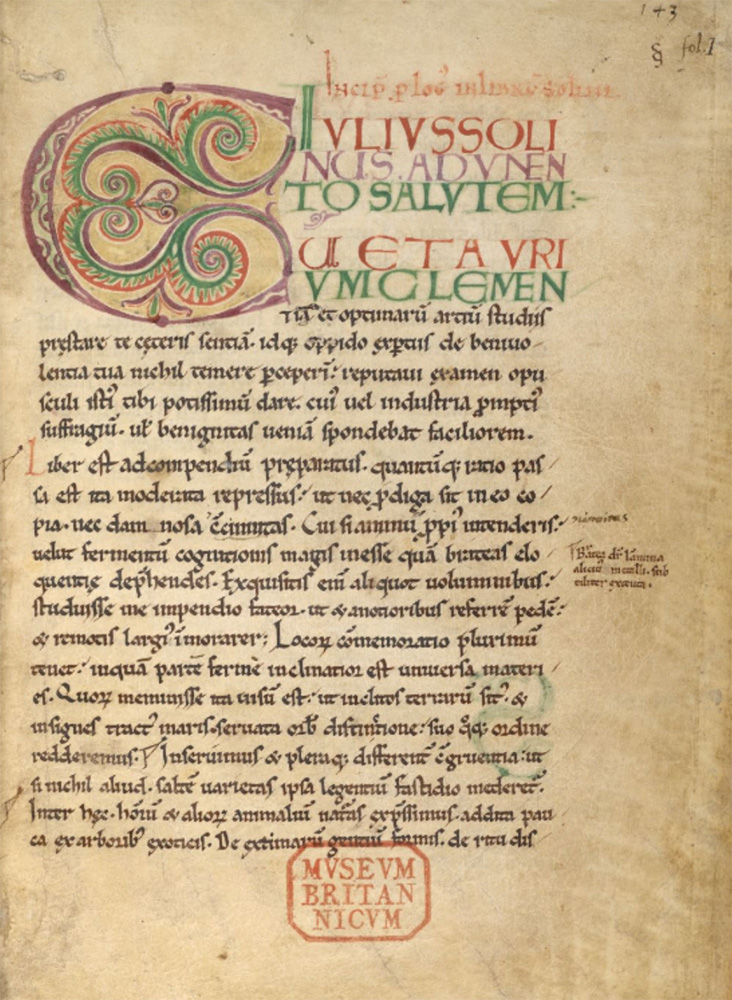 143
§ fol. 1
Incip̄ ploḡ in librū Solini
IVLIVS SOLI
NUS. ADVNEN
TO SALVTEM:-
CUM ET AVRI
VM CLEMEN
tiā et optimarū artiū studiis
pręstare te cęteris sentiā. idq; oppido exptus de beniuo-
lentia tua nichil temere pceperī: reputaui examen opu
sculi istī tibi potissimū dare. cuī uel industria pmptī
suffragiū. ut benignitas ueniā spondebat faciliorem.
Liber est ad compendiū pręparatus. quantūq; ratio pas/
sa est ita moderata repressus: ut nec pdiga sit in eo co/
pia. nec dam nosa cc̄innitas. Cui si animū ppī intenderis:
uelut fermentū cognitionis magis inesse quā bratteas elo/
quentię dephendes. Exquisitis enī aliquot uoluminibus:
studuisse me impendio fateor. ut & a notioribus referrē pedē:
& remotis largī īmorarer: Locoꝝ cōmemoratio plurimū
tenet: in quā partē fermē inclinatior est uniuersa materi/
es. Quoꝝ meminisse ita uisū est: ut inclitos terrarū sit'. &
insignes tract' maris. seruata orb' distinctione: suo q̄q; ordine
redderemus. Inseruimus & pleraq; different' cgruentia: ut
si nichil aliud. saltē uarietas ipsa legentiū fastidio mederet'.
Inter hęc. hoīū & alioꝝ animaliū natās expssimus. addita pau
ca ex arborib' exoticis. De extimarū gentiū formis. de ritu dis/
Bratea dr̄ lamina
alicuī metalli. sub
tiliter extenta.
MVSEVM
BRITAN
NICVM